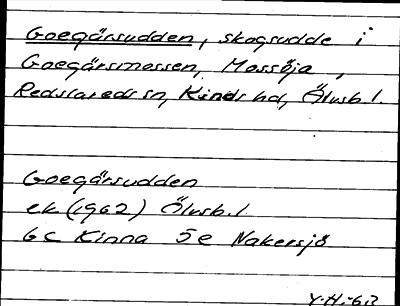 Goegärsudden, skogsudde i
Goegärsmossen, Mossöja,
Redslareds sn, Kinds hd, Älvsb. l.
Goegärsudden
ek (1962) Älvsb. l.
6c Kinna 5e Nakersjö
Y.H.-63